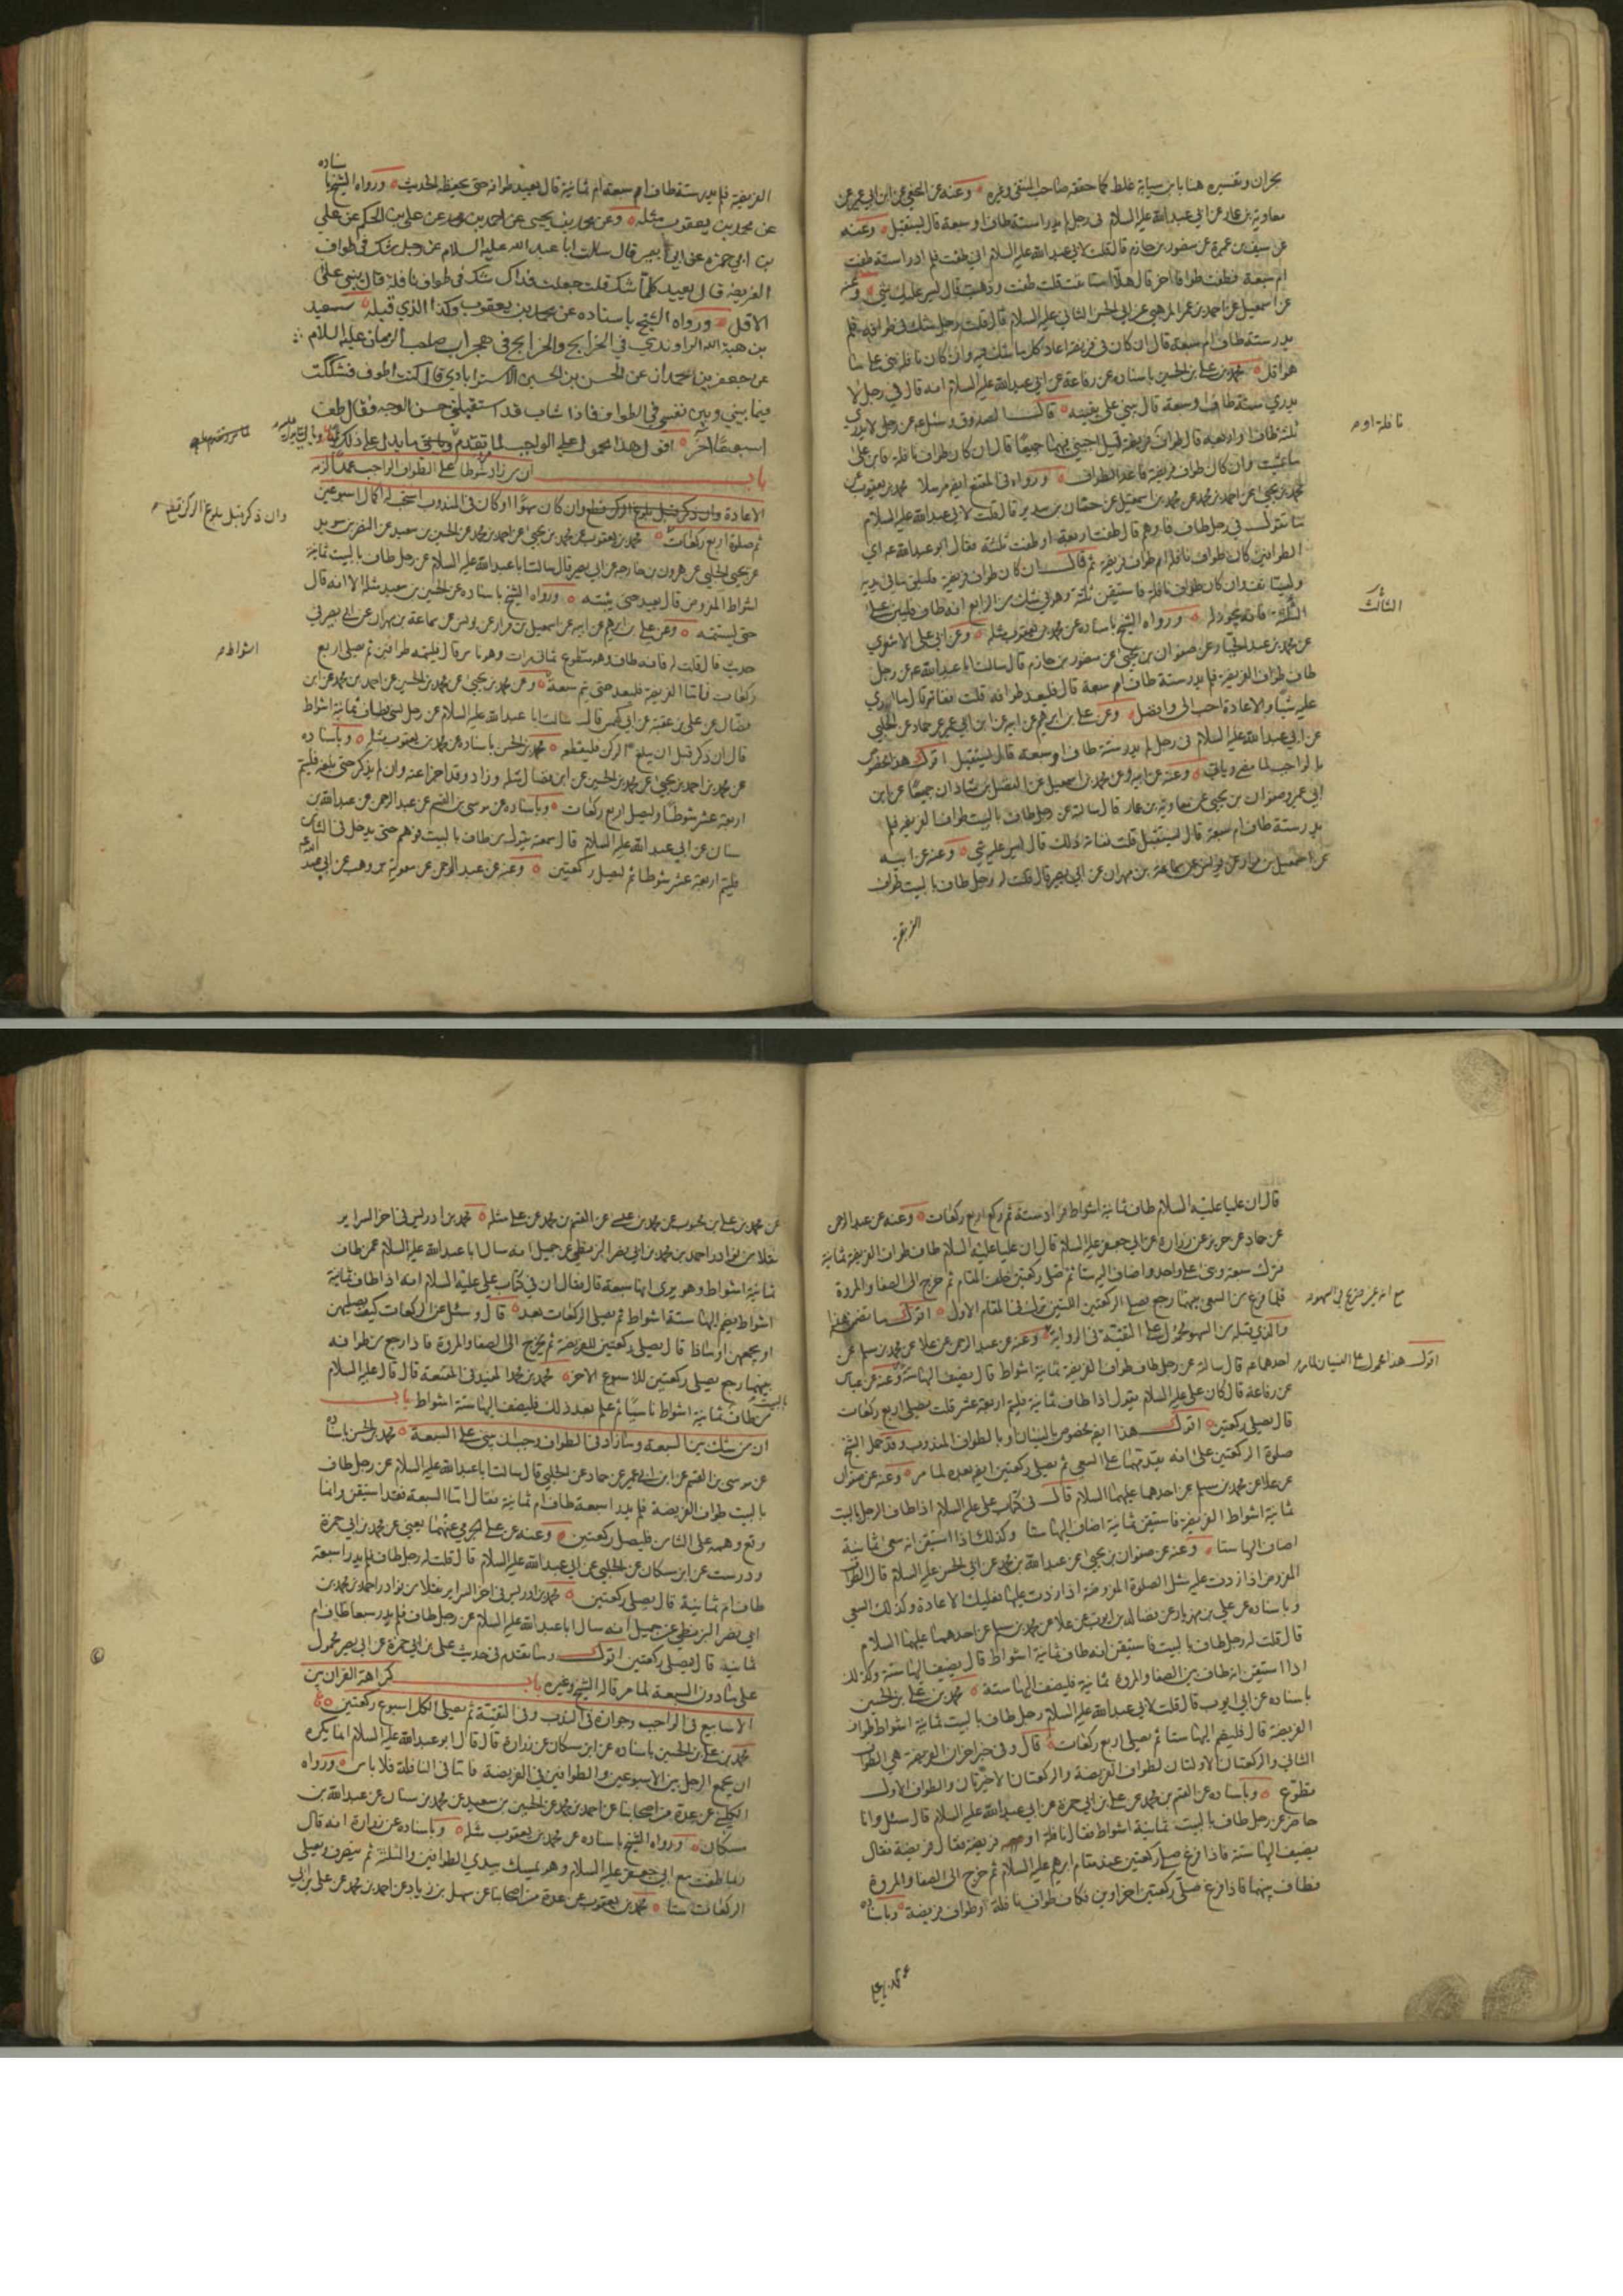 بحران وتفسيره هنا بابن سيابة غلط كما حققه صاحب المنتقى وغيره وعنه عن النخعي عن ابن ابي عمير عن
معاوية بن عمار عن ابي عبدالله عليه السلام في رجل لم يدر استة طاف او سبعة قال يستقبل وعنه
عن سيف بن عميرة عن منصور بن حازم قال قلت لابي عبدالله عليه السلام اني طفت فلم ادر استة طفت
ام سبعة فطفت طوافا اخر قال هلا استأنفت قلت طفت وذهبت قال ليس عليك شيء وعنه
عن اسمعيل عن احمد بن عمر المرهبي عن ابي الحسن الثاني عليه السلام قال قلت رجل شك في طوافه فلم
يدر ستة طاف ام سبعة قال ان كان في فريضة اعاد كل ما شك فيه وان كان نافلة بنى على ما
هو اقل محمد بن علي بن الحسين باسناده عن رفاعة عن ابي عبدالله عليه السلام انه قال في رجل لا
يدري ستة طاف او سبعة قال يبني على يقينه قال الصدوق وسئل عن رجل لا يدري
ثلثة طاف او اربعة قال طواف فريضة قيل اجبني فيهما جميعا قال ان كان طواف نافلة فابن على
ما شئت وان كان طواف فريضة فاعد الطواف ورواه في المقنع ايضا مرسلا محمد بن يعقوب عن
محمد بن يحيى عن احمد بن محمد عن محمد بن اسمعيل عن حنان بن سدير قال قلت لابي عبدالله عليه السلام
ما تقول في رجل طاف فاوهم قال طفت اربعة او طفت ثلثة فقال ابو عبدالله اي
الطوافين كان طواف نافلة ام طواف فريضة ثم قال ان كان طواف فريضة فليلق ما في يديه
وليستأنف وان كان طواف نافلة فاستيقن ثلثة وهو في شك من الرابع انه طاف فليبن على
الثلثة فانه يجوز له ورواه الشيخ باسناده عن محمد بن يعقوب مثله وعن ابي علي الاشعري
عن محمد بن عبدالجبار عن صفوان بن يحيى عن منصور بن حازم قال سالت ابا عبدالله عن رجل
طاف طواف الفريضة فلم يدر ستة طاف ام سبعة قال فليعد طوافه قلت ففاته قال ما ارى
عليه شيئا والاعادة احب الي وافضل وعن علي بن ابرهيم عن ابيه عن ابن ابي عمير عن حماد عن الحلبي
عن ابي عبدالله عليه السلام في رجل لم يدر ستة طاف او سبعة قال يستقبل اقول هذا مخصوص
بالواجب لما مضى وياتي وعنه عن ابيه وعن محمد بن اسمعيل عن الفضل بن شاذان جميعا عن ابن
ابي عمير وصفوان بن يحيى عن معاوية بن عمار قال سالته عن رجل طاف بالبيت طواف الفريضة فلم
يدر ستة طاف ام سبعة قال يستقبل قلت ففاته ذلك قال ليس عليه شيء وعنه عن ابيه
عن اسمعيل بن مرار عن يونس عن سماعة بن مهران عن ابي بصير قال قلت له رجل طاف بالبيت طواف
الفريضة
نافلة او
الثالث
الفريضة فلم يدر ستة طاف ام سبعة ام ثمانية قال يعيد طوافه حتى يحفظه الحديث ورواه الشيخ باسناده
عن محمد بن يعقوب مثله وعن محمد بن يحيى عن احمد بن محمد عن علي بن الحكم عن علي
بن ابي حمزة عن ابي بصير قال سالت ابا عبد الله عليه السلام عن رجل شك في طواف
الفريضة قال يعيد كلما شك قلت جعلت فداك شك في طواف نافلة قال يبني على
الاقل ورواه الشيخ باسناده عن محمد بن يعقوب وكذا الذي قبله سعيد
بن هبة الله الراوندي في الخرايج والجرايح في معجزات صاحب الزمان عليه السلام
عن جعفر بن حمدان عن الحسن بن الحسين الاسترابادي قال كنت اطوف فشككت
فيما بيني وبين نفسي في الطواف فاذا شاب قد استقبلني حسن الوجه وقال طف
اسبوعا اخر اقول هذا محمول على الواجب لما تقدم
باب ان من زاد شوطا على الطواف الواجب عمدا لزمه
الاعادة وان كان سهوا او كان في المندوب استحب له اكمال اسبوعين
ثم صلوة اربع ركعات محمد بن يعقوب عن محمد بن يحيى عن احمد بن محمد عن الحسين بن سعيد عن النضر بن سويد
عن يحيى الحلبي عن هرون بن خارجة عن ابي بصير قال سالت ابا عبدالله عليه السلام عن رجل طاف بالبيت ثمانية
اشواط المفروض قال يعيد حتى يثبته ورواه الشيخ باسناده عن الحسين بن سعيد مثله الا انه قال
حتى يستتمه وعن علي بن ابرهيم عن ابيه عن اسمعيل بن مرار عن يونس عن سماعة بن مهران عن ابي بصير في
حديث قال قلت له فانه طاف وهو متطوع ثماني مرات وهو ناس قال فليتمه طوافين ثم يصلي اربع
ركعات فاما الفريضة فليعد حتى يتم سبعة وعن محمد بن يحيى عن محمد بن الحسين عن احمد بن محمد عن ابن
فضال عن علي بن عقبة عن ابي كهمس قال سالت ابا عبدالله عليه السلام عن رجل نسي فطاف ثمانية اشواط
قال ان ذكر قبل ان يبلغ الركن فليقطعه محمد بن الحسن باسناده عن محمد بن يعقوب مثله وباسناده
عن محمد بن احمد بن يحيى عن محمد بن الحسين عن ابن فضال مثله وزاد وقد اجزا عنه وان لم يذكر حتى بلغه فليتم
اربعة عشر شوطا وليصل اربع ركعات وباسناده عن موسى بن القسم عن عبد الرحمن عن عبدالله بن
سنان عن ابي عبد الله عليه السلام قال سمعته يقول من طاف بالبيت فوهم حتى يدخل في الثامن
فليتم اربعة عشر شوطا ثم ليصل ركعتين وعنه عن عبد الرحمن عن معوية بن وهب عن ابي عبدالله
وان ذكر قبل بلوغ الركن قطع
اشواط
قال ان عليا عليه السلام طاف ثمانية اشواط فزاد ستة ثم ركع اربع ركعات وعنه عن عبد الرحمن
عن حماد عن حريز عن زرارة عن ابي جعفر عليه السلام قال ان عليا عليه السلام طاف طواف الفريضة ثمانية
فترك سبعة وبنى على واحد واضاف اليه ستا ثم صلى ركعتين خلف المقام ثم خرج الى الصفا والمروة
فلما فرغ من السعي بينهما رجع فصلى الركعتين اللتين ترك في المقام الاول اقول ما تضمن هذا
والذي قبله من السهو محمول على التقية في الرواية وعنه عن عبد الرحمن عن علا عن محمد بن مسلم عن
احدهما قال سالته عن رجل طاف طواف الفريضة ثمانية اشواط قال يضيف اليها ستة وعنه عن عباس
عن رفاعة قال كان علي عليه السلام يقول اذا طاف ثمانية فليتم اربعة عشر قلت يصلي اربع ركعات
قال يصلي ركعتين اقول هذا ايضا مخصوص بالنسيان او بالطواف المندوب وقد حمل الشيخ
صلوة الركعتين على انه يقدمهما على السعي ثم يصلي ركعتين ايضا بعده لما مر وعنه عن صفوان
عن علا عن محمد بن مسلم عن احدهما عليهما السلام قال في كتاب علي عليه السلام اذا طاف الرجل بالبيت
ثمانية اشواط الفريضة فاستيقن ثمانية اضاف اليها ستا وكذلك اذا استيقن انه سعى ثمانية
اضاف اليها ستا وعنه عن صفوان بن يحيى عن عبدالله بن محمد عن ابي الحسن عليه السلام قال الطواف
المفروض اذا زدت عليه مثل الصلوة المفروضة اذا زدت عليها فعليك الاعادة وكذلك السعي
وباسناده عن علي بن مهزيار عن فضالة بن ايوب عن علا عن محمد بن مسلم عن احدهما عليهما السلام
قال قلت له رجل طاف بالبيت فاستيقن انه طاف ثمانية اشواط قال يضيف اليها ستة وكذلك
اذا استيقن انه طاف بين الصفا والمروة ثمانية فليضف اليها ستة محمد بن علي بن الحسين
باسناده عن ابي ايوب قال قلت لابي عبدالله عليه السلام رجل طاف بالبيت ثمانية اشواط طواف
الفريضة قال فليضم اليها ستا ثم يصلي اربع ركعات قال وفي خبر اخر ان الفريضة هي الطواف
الثاني والركعتان الاولتان لطواف الفريضة والركعتان الاخيرتان والطواف الاول
تطوع وباسناده عن القسم بن محمد عن علي بن ابي حمزة عن ابي عبدالله عليه السلام قال سئل وانا
حاضر عن رجل طاف بالبيت ثمانية اشواط فقال نافلة او فريضة فقال فريضة فقال
يضيف اليها ستة فاذا فرغ صلى ركعتين عند مقام ابرهيم عليه السلام ثم خرج الى الصفا والمروة
فطاف بينهما فاذا فرغ صلى ركعتين اخراوين فكان طواف نافلة وطواف فريضة وباسناده
اقول هذا محمول على النسيان لما مر
عن محمد بن علي بن محبوب عن محمد بن عيسى عن القسم بن محمد عن علي مثله محمد بن ادريس في اخر السراير
نقلا من نوادر احمد بن محمد بن ابي نصر البزنطي عن جميل انه سال ابا عبدالله عليه السلام عمن طاف
ثمانية اشواط وهو يرى انها سبعة قال فقال ان في كتاب علي عليه السلام انه اذا طاف ثمانية
اشواط يضم اليها ستة اشواط ثم يصلي الركعات بعد قال وسئل عن الركعات كيف يصليهن
او يجمعهن او ماذا قال يصلي ركعتين للفريضة ثم يخرج الى الصفا والمروة فاذا رجع من طوافه
بينهما رجع يصلي ركعتين للاسبوع الاخر محمد بن محمد المفيد في المقنعة قال قال عليه السلام
من طاف بالبيت ثمانية اشواط ناسيا ثم علم بعد ذلك فليضف اليها ستة اشواط باب
ان من شك بين السبعة وما زاد في الطواف وجب ان يبني على السبعة محمد بن الحسن باسناده
عن موسى بن القسم عن ابن ابي عمير عن حماد عن الحلبي قال سالت ابا عبدالله عليه السلام عن رجل طاف
بالبيت طواف الفريضة فلم يدر اسبعة طاف ام ثمانية فقال اما السبعة فقد استيقن وانما
وقع وهمه على الثامن فليصل ركعتين وعنه عن علي الجرمي عنهما يعني عن محمد بن ابي حمزة
ودرست عن ابن مسكان عن الحلبي عن ابي عبدالله عليه السلام قال قلت له رجل طاف فلم يدر اسبعة
طاف ام ثمانية قال يصلي ركعتين محمد بن ادريس في اخر السراير نقلا من نوادر احمد بن محمد بن
ابي نصر البزنطي عن جميل انه سال ابا عبدالله عليه السلام عن رجل طاف فلم يدر سبعا طاف ام
ثمانية قال يصلي ركعتين اقول وما تقدم في حديث علي بن ابي حمزة عن ابي بصير محمول
على ما دون السبعة لما مر قاله الشيخ وغيره باب كراهة القران بين
الاسابيع في الواجب وجوازه في الندب وفي التقية ثم يصلي لكل اسبوع ركعتين
محمد بن علي بن الحسين باسناده عن ابن مسكان عن زرارة قال قال ابو عبدالله عليه السلام انما يكره
ان يجمع الرجل بين الاسبوعين والطوافين في الفريضة فاما في النافلة فلا باس ورواه
الكليني عن عدة من اصحابنا عن احمد بن محمد عن الحسين بن سعيد عن محمد بن سنان عن عبدالله بن
مسكان ورواه الشيخ باسناده عن محمد بن يعقوب مثله وباسناده عن زرارة انه قال
ربما طفت مع ابي جعفر عليه السلام وهو يمسك بيدي الطوافين والثلثة ثم ينصرف ويصلي
الركعات ستا محمد بن يعقوب عن عدة من اصحابنا عن سهل بن زياد عن احمد بن محمد عن علي بن ابي